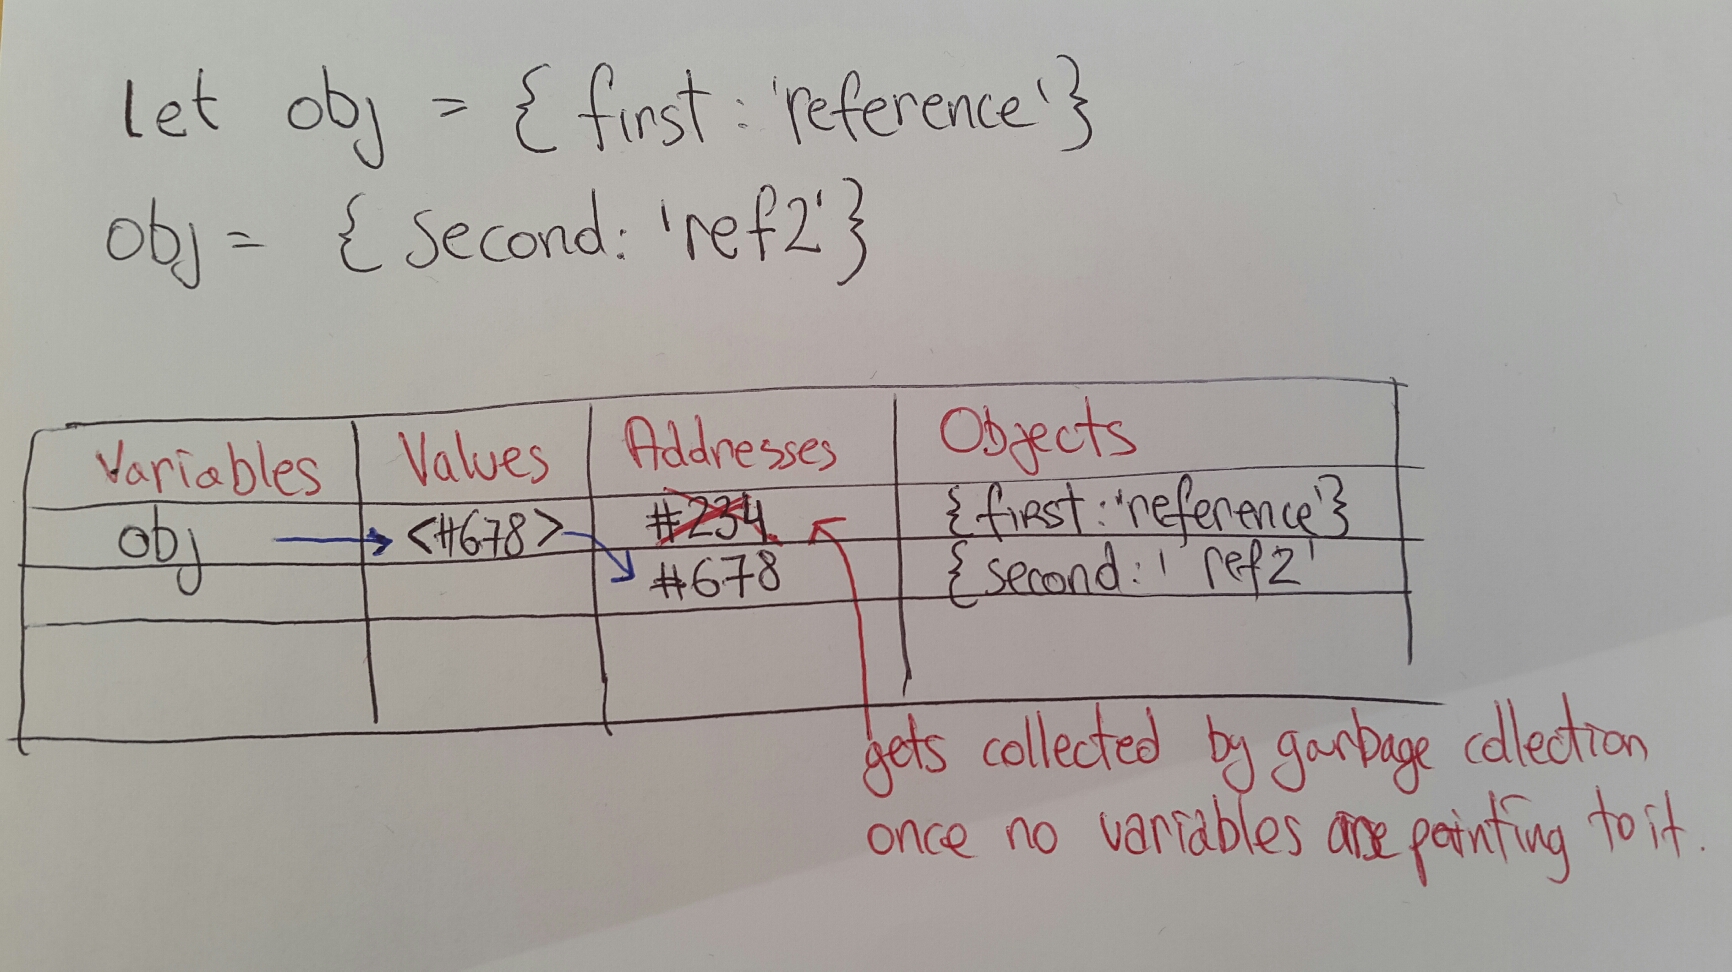 let obj = { first : 'reference' }
obj = { second: 'ref2' }
Variables Values Addresses Objects
obj <#678> #234 { first : 'reference' }
#678 { second : ' ref2 '
gets collected by garbage collection
once no variables are pointing to it.